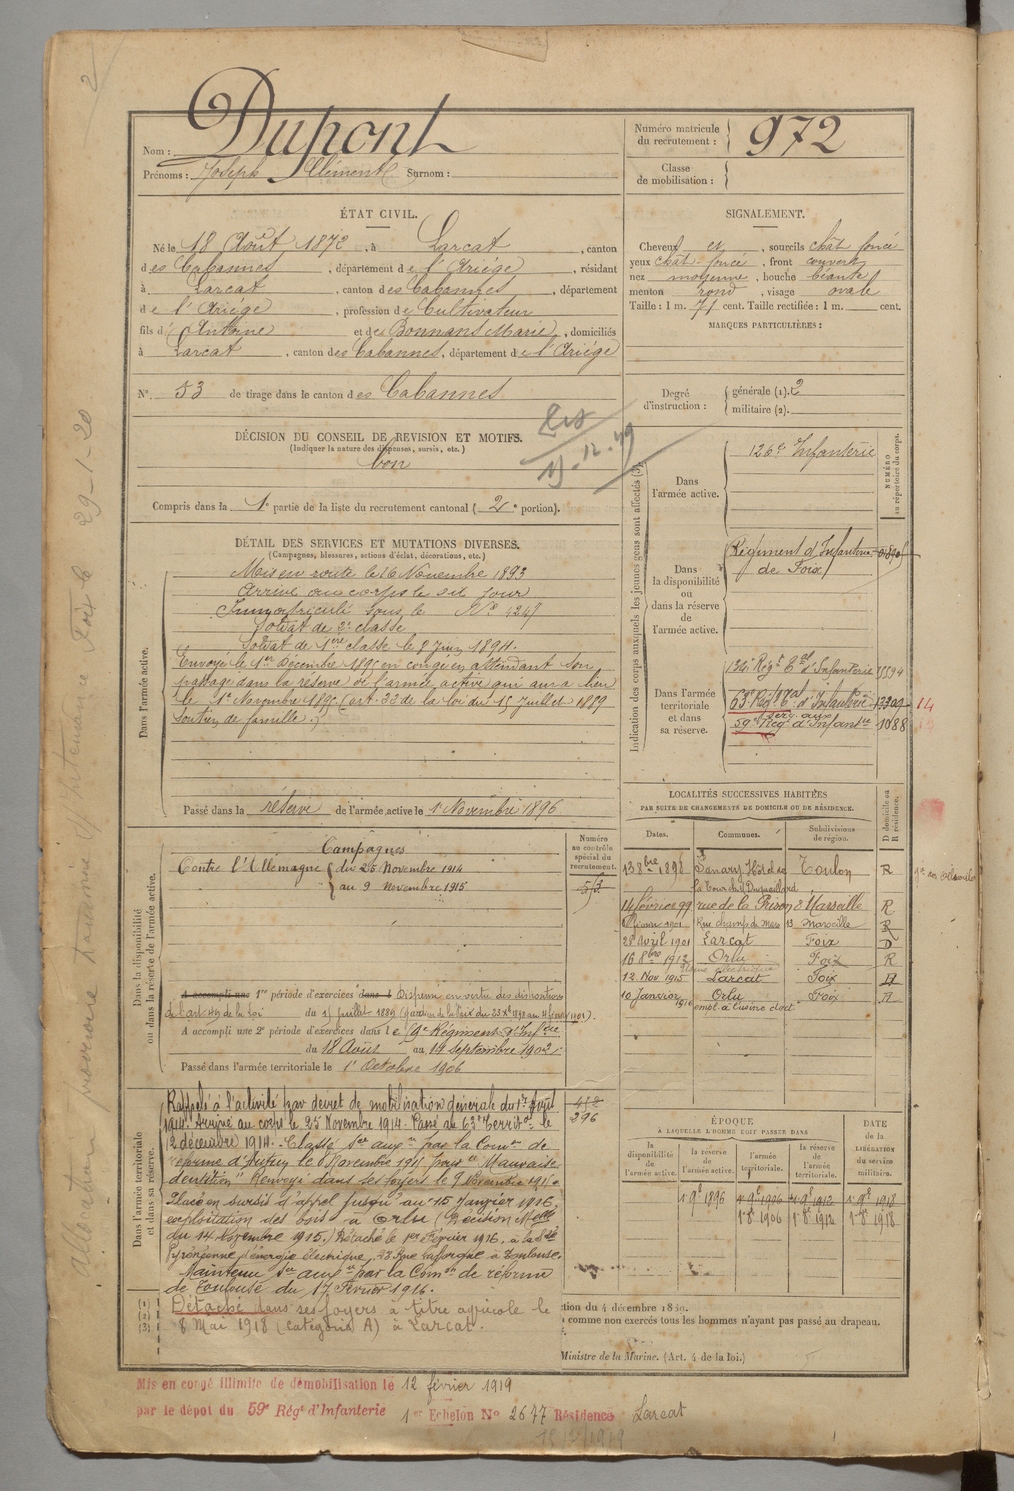 Nom : Dupont
Prénoms : Joseph Clément Surnom :
Numéro matricule du recrutement : 972
Classe de mobilisation :
ÉTAT CIVIL.
Né le 18 Août 1872, à Larcat, canton
des Cabannes, département de l'Ariège, résidant
à Larcat, canton des Cabannes, département
de l'Ariège, profession de Cultivateur
fils d' Antoine et de Bonnans Marie, domiciliés
à Larcat, canton des Cabannes, département de l'Ariège
N° 53 de tirage dans le canton des Cabannes
SIGNALEMENT.
Cheveux et, sourcils chât foncé
yeux chât foncé, front couvert
nez moyenne, bouche béante
menton rond, visage ovale
Taille : 1 m. 71 cent. Taille rectifiée : 1 m. cent.
MARQUES PARTICULIÈRES :
Degré d'instruction : générale (1). 2
militaire (2).
DÉCISION DU CONSEIL DE REVISION ET MOTIFS.
(Indiquer la nature des dispenses, sursis, etc.)
bon
Compris dans la 1e partie de la liste du recrutement cantonal (2e portion).
DÉTAIL DES SERVICES ET MUTATIONS DIVERSES.
(Campagnes, blessures, actions d'éclat, décorations, etc.)
Dans l'armée active.
Mis en route le 16 Novembre 1893
arrivé au corps le dit jour
Immatriculé sous le N° 4247
Soldat de 2e classe
Soldat de 1ère classe le 8 Juin 1894.
Envoyé le 1er Décembre 1895 en congé en attendant son
passage dans la réserve de l'armée active qui aura lieu
le 1er Novembre 1896 (art. 22 de la loi du 15 Juillet 1889
soutien de famille.)
Passé dans la réserve de l'armée active le 1 Novembre 1896
Indication des corps auxquels les jeunes gens sont affectés (3)
NUMÉRO au répertoire du corps.
Dans l'armée active.
126e Infanterie
Dans la disponibilité ou dans la réserve de l'armée active.
Régiment d'Infanterie
de Foix
Dans l'armée territoriale et dans sa réserve.
134e Régt Tal d'Infanterie
63e Régt Tal d'Infanterie 14
serv. aux
59e Régt d'Infantie 1088
LOCALITÉS SUCCESSIVES HABITÉES
PAR SUITE DE CHANGEMENTS DE DOMICILE OU DE RÉSIDENCE.
D domicile ou R résidence.
Dates. Communes. Subdivisions de région.
13 8bre 1898 Sanary Toulon R
14 février 99 rue de la Prison 8 Marseille R
1901 Rue champ de mars 13 Marseille R
28 avril 1901 Larcat Foix D
16 8bre 1912 Orlu Foix R
Usine électrique
12 Nov 1915 Larcat Foix
10 Janvier 1916 Orlu Foix
empl. à l'usine élect
Dans la disponibilité ou dans la réserve de l'armée active.
Numéro au contrôle spécial du recrutement.
Campagnes
Contre l'Allemagne du 25 Novembre 1914
au 9 Novembre 1915
A accompli une 1re période d'exercices dans l Dispensé en vertu des dispositions
de l'art 49 de la loi du 15 juillet 1889
A accompli une 2e période d'exercices dans le 9e Régiment d'Infrie
du 18 Août au 14 Septembre 1902
Passé dans l'armée territoriale le 1er Octobre 1906
Dans l'armée territoriale et dans sa réserve.
Rappelé à l'activité par décret de mobilisation générale du 1er Août
1914. Arrivé au corps le 25 Novembre 1914. Passé au 63e Territal le
12 décembre 1914. Classé Ser auxre par la Comon de
réforme d'Autun le 6 Novembre 1915 pour "Mauvaise
dentition" Renvoyé dans ses foyers le 9 Novembre 1915.
Placé en sursis d'appel jusqu'au 15 Janvier 1916
exploitation des bois à Orlu (Décision Mlle
du 14 Novembre 1915.) Détaché le 1er Février 1916, à la Sté
Pyrénéenne d'énergie électrique, Rue Lafargue à Toulouse
Maintenu Ser auxre par la Comon de réforme
de Toulouse du 17 Février 1916.
Détaché dans ses foyers à titre agricole le
8 Mai 1918 (Catégorie A) à Larcat.
296
ÉPOQUE
A LAQUELLE L'HOMME DOIT PASSER DANS
la disponibilité de l'armée active. la réserve de l'armée active. l'armée territoriale. la réserve de l'armée territoriale.
DATE de la LIBÉRATION du service militaire.
1er 9bre 1896 1er 9bre 1906 1er 9bre 1912 1er 9bre 1918
1er 8bre 1906 1er 8bre 1912 1er 8bre 1918
(1)
(2)
(3)
tion du 4 décembre 1889.
comme non exercés tous les hommes n'ayant pas passé au drapeau.
Ministre de la Marine. (Art. 4 de la loi.)
Mis en congé illimité de démobilisation le 12 février 1919
par le dépôt du 59e Régt d'Infanterie 1er Echelon N° 2677 Résidence Larcat
Allocation provisoire Foix le 29-1-20
2